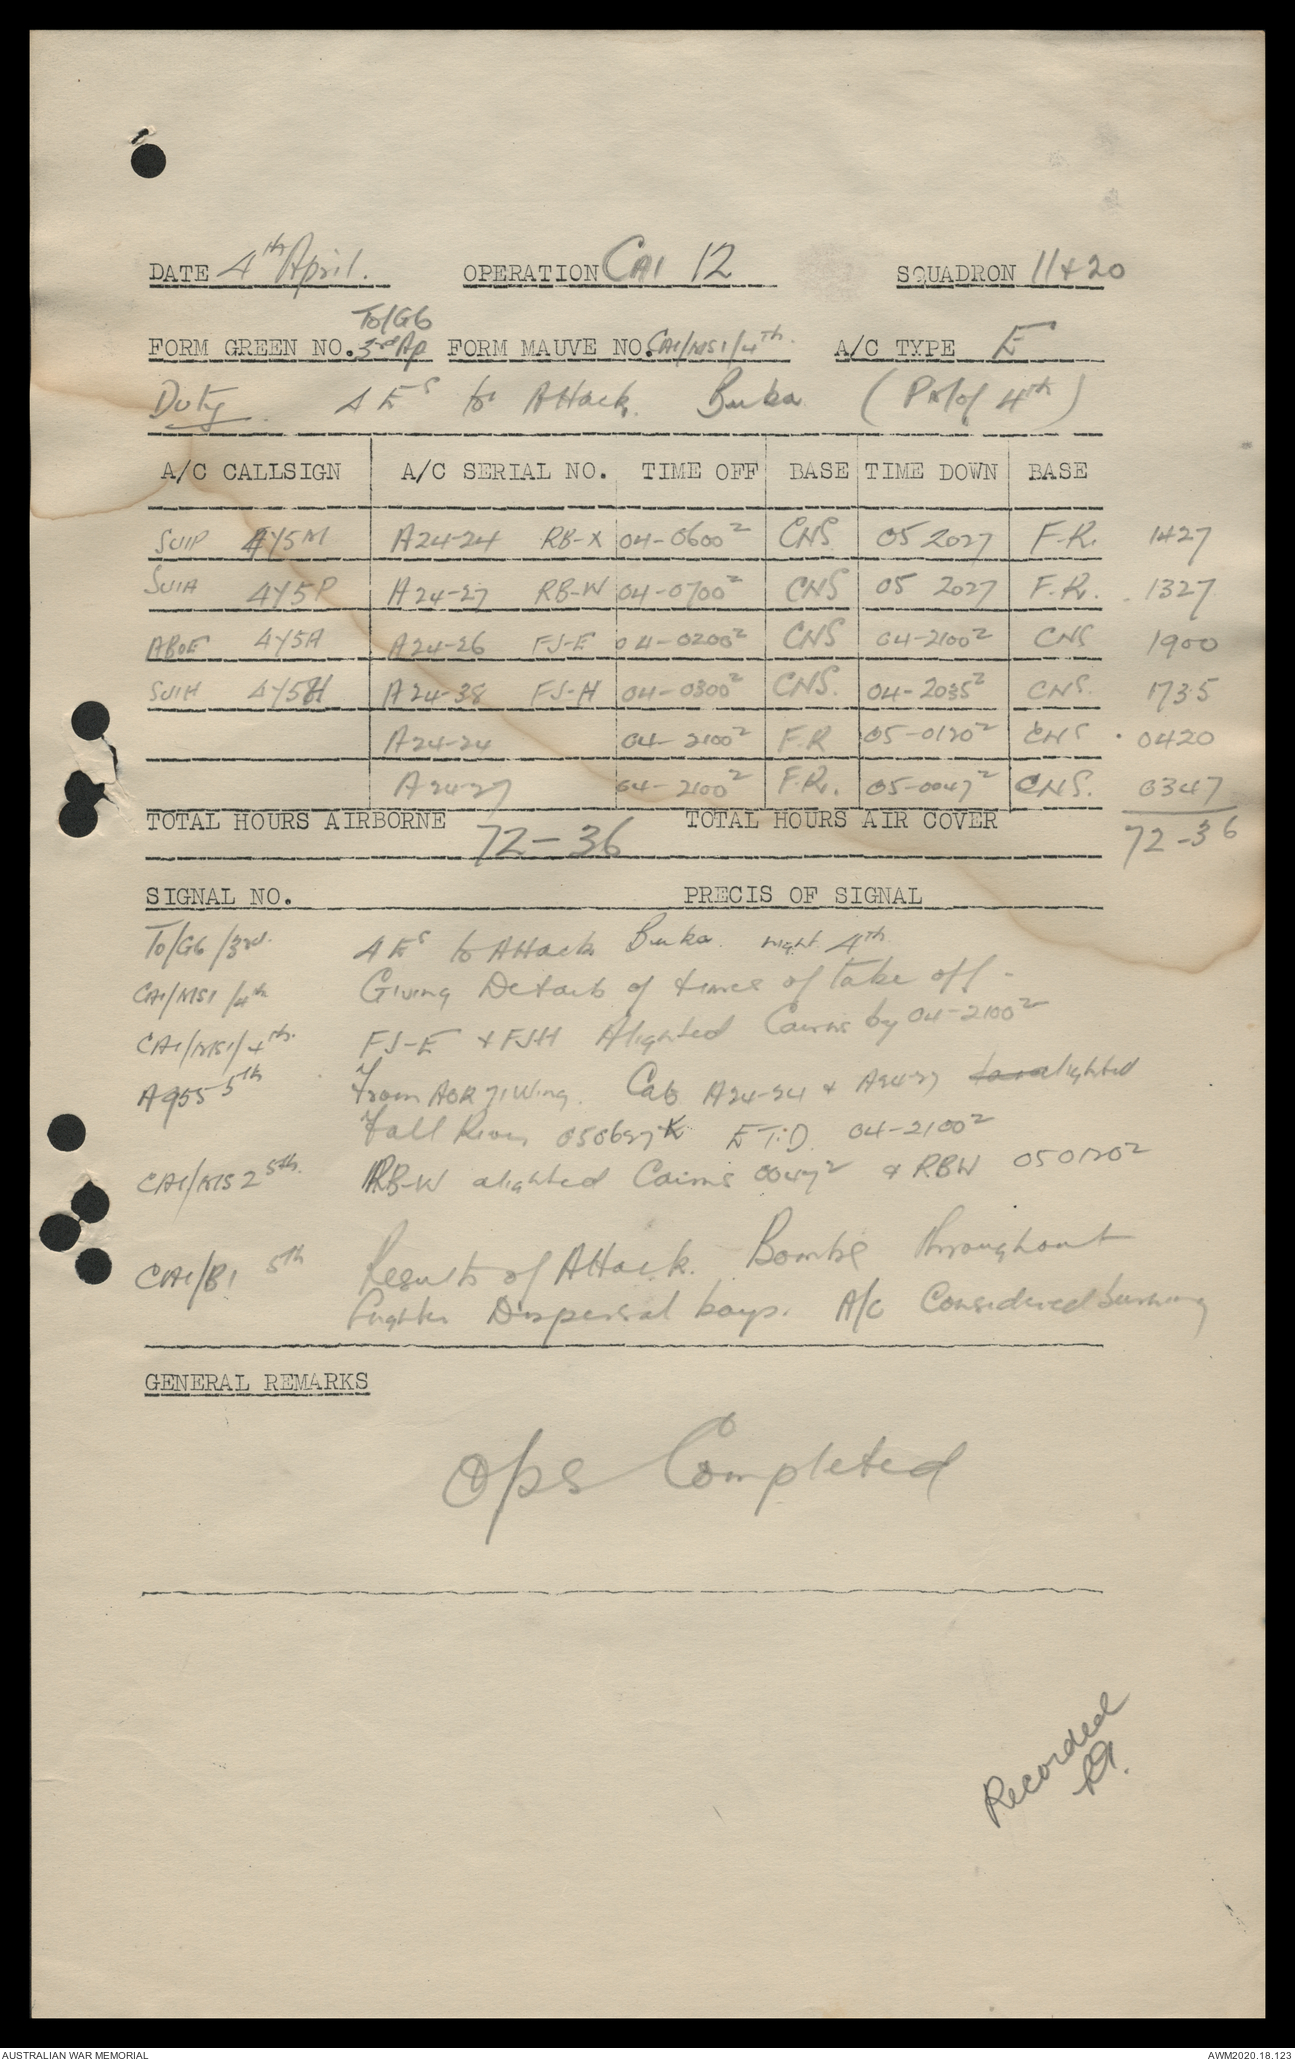 DATE 4th April. OPERATION CAI 12 SQUADRON 11 + 20
To/G6
FORM GREEN NO. 3rd Ap FORM MAUVE NO. CAI/MS1/4th. A/C TYPE E
Duty 4 Es to Attack Buka (P.M. of 4th)
A/C CALLSIGN A/C SERIAL NO. TIME OFF BASE TIME DOWN BASE
SUIP 4Y5M A24-24 RB-X 04-0600Z CNS 05 2027 F.R. 1427
SUIA 4Y5P A24-27 RB-W 04-0700Z CNS 05 2027 F.R. 1327
ABOE 4Y5A A24-26 FJ-E 04-0200Z CNS 04-2100Z CNS 1900
SUIH 4Y5H A24-38 FJ-H 04-0300Z CNS. 04-2035Z CNS. 1735
A24-24 04-2100Z F.R 05-0120Z CNS 0420
A24-27 04-2100Z F.R. 05-0047Z CNS. 0347
TOTAL HOURS AIRBORNE 72-36 TOTAL HOURS AIR COVER 72-36
SIGNAL NO. PRECIS OF SIGNAL
To/G6/3rd. 4 Es to Attack Buka. night 4th.
CAI/MS1/4th Giving Details of times of take off-
CAI/MS1/4th. FJ-E + FJH Alighted Cairns by 04-2100Z
A955 5th From AOR 71 Wing. Cats A24-24 + A24-27 alighted
Fall River 050627K E.T.D. 04-2100Z
CAI/MS2 5th. RB-W alighted Cairns 0047Z & RBW 050120Z
CAI/B1 5th Results of Attack. Bombs throughout
fighter Dispersal bays. A/c Considered burning
GENERAL REMARKS
Ops Completed
Recorded